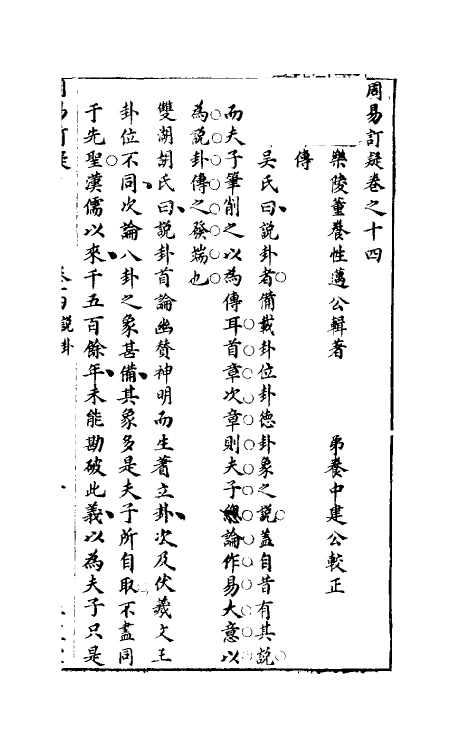 周易訂疑卷之十四
樂陵董養性邁公輯著　弟養中建公較正
傳
吳氏曰說卦者備載卦位卦德卦象之說蓋自昔有其說
而夫子筆削之以為傳耳首章次章則夫子總論作易大意以
為說卦傳之發端也
雙湖胡氏曰說卦首論幽贊神明而生蓍立卦次及伏羲文王
卦位不同次論八卦之象甚備其象多是夫子所自取不盡同
于先聖漢儒以來千五百餘年未能勘破此義以為夫子只是
周易訂疑
說卦